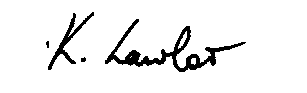 K. Lawlor